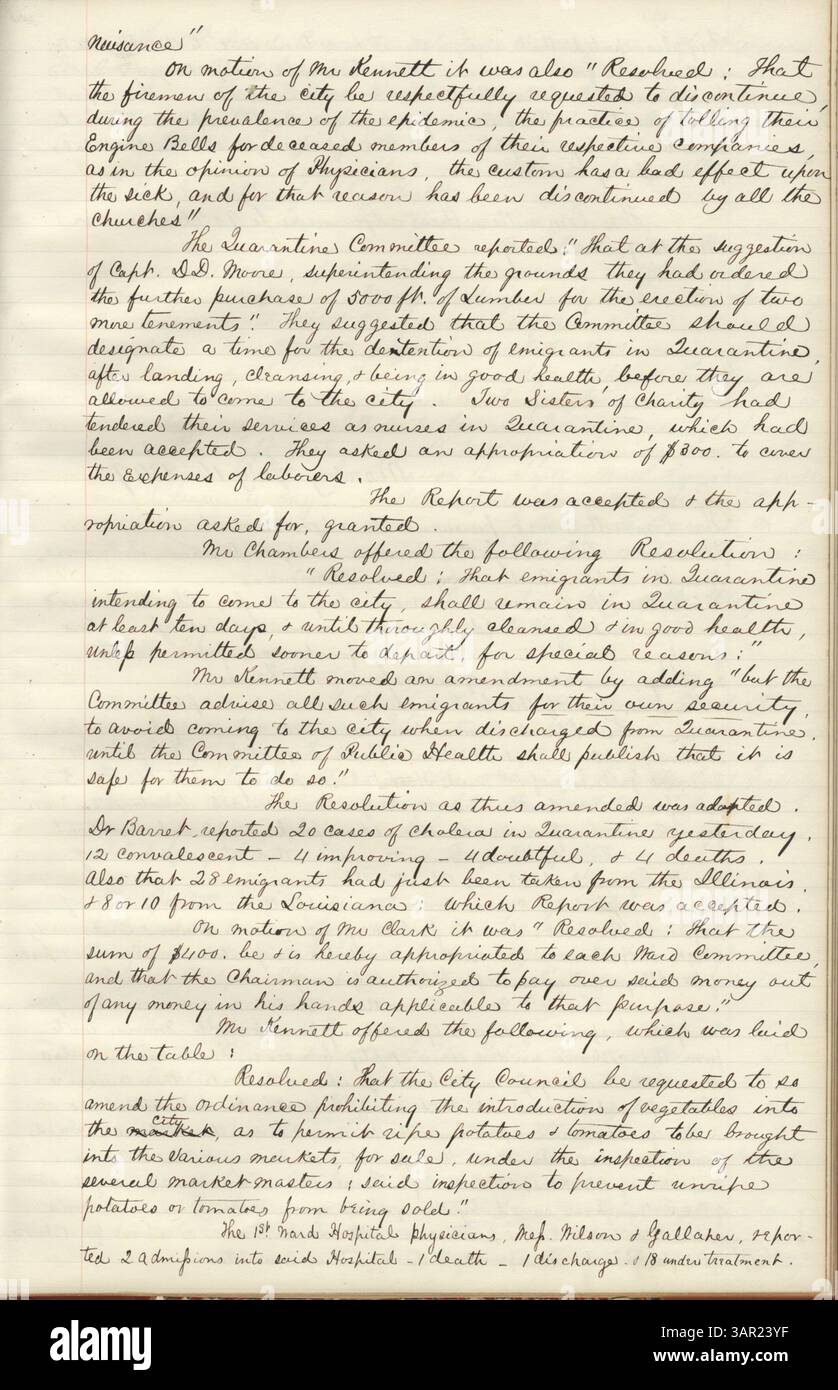 Nuisance"
On motion of Mr Kennett it was also "Resolved; That
the firemen of the city be respectfully requested to discontinue,
during the prevalence of the epidemic, the practice of tolling their
Engine Bells for deceased members of their respective companies,
as in the opinion of Physicians, the custom has a bad effect upon
the sick, and for that reason has been discontinued by all the
churches"
The Quarantine Committee reported; "That at the suggestion
of Capt. D.D. Moore, superintending the grounds they had ordered
the further purchase of 5000 ft. of Lumber for the erection of two
more tenements". They suggested that the Committee should
designate a time for the detention of emigrants in Quarantine,
after landing, cleansing, & being in good health, before they are
allowed to come to the city. Two Sisters of Charity had
tendered their services as nurses in Quarantine, which had
been accepted. They asked an appropriation of $300. to cover
the Expenses of laborers.
The Report was accepted & the app-
ropriation asked for, granted.
Mr Chambers offered the following Resolution:
"Resolved; That emigrants in Quarantine
intending to come to the city, shall remain in Quarantine
at least ten days, & until thoroughly cleansed & in good health,
unless permitted sooner to depart, for special reasons:"
Mr Kennett moved an amendment by adding "but the
Committee advise all such emigrants for their own security,
to avoid coming to the city when discharged from Quarantine,
until the Committee of Public Health shall publish that it is
safe for them to do so."
The Resolution as thus amended was adopted.
Dr Barret reported 20 cases of cholera in Quarantine yesterday.
12 convalescent - 4 improving - 4 doubtful, & 4 deaths.
Also that 28 emigrants had just been taken from the Illinois,
& 8 or 10 from the Louisiana: which Report was accepted.
On motion of Mr Clark it was "Resolved; That the
sum of $400. be & is hereby appropriated to each Ward Committee,
and that the Chairman is authorized to pay over said money out
of any money in his hands applicable to that purpose."
Mr Kennett offered the following, which was laid
on the table:
Resolved: That the City Council be requested to so
amend the ordinance prohibiting the introduction of vegetables into
the market city, as to permit ripe potatoes & tomatoes to be brought
into the various markets, for sale, under the inspection of the
several market masters; said inspection to prevent unripe
potatoes or tomatoes from being sold."
The 1st Ward Hospital physicians, Mess. Wilson & Gallaher, repor-
ted 2 admissions into said Hospital - 1 death - 1 discharge - & 18 under treatment.
alamy
Image ID: 3AR23YF
www.alamy.com